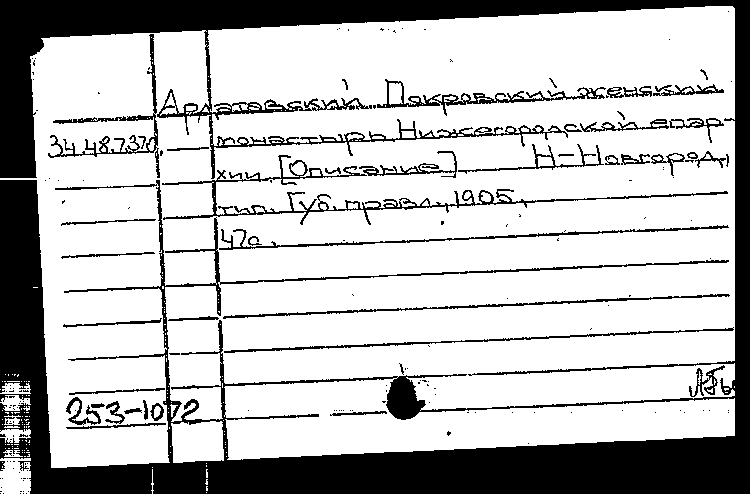 Ардатовский Покровский женский
34.48.7.370. монастырь Нижегородской епар-
хии. [Описание] Н-Новгород,
тип. Губ. правл., 1905,
47с.
253-1072